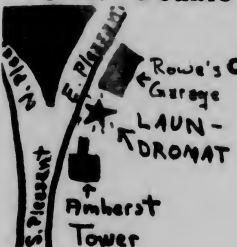 N. Plea
E. Pleasan
Rowe's G
Garage
LAUN-
DROMAT
S. Pleasant
Amherst
Tower